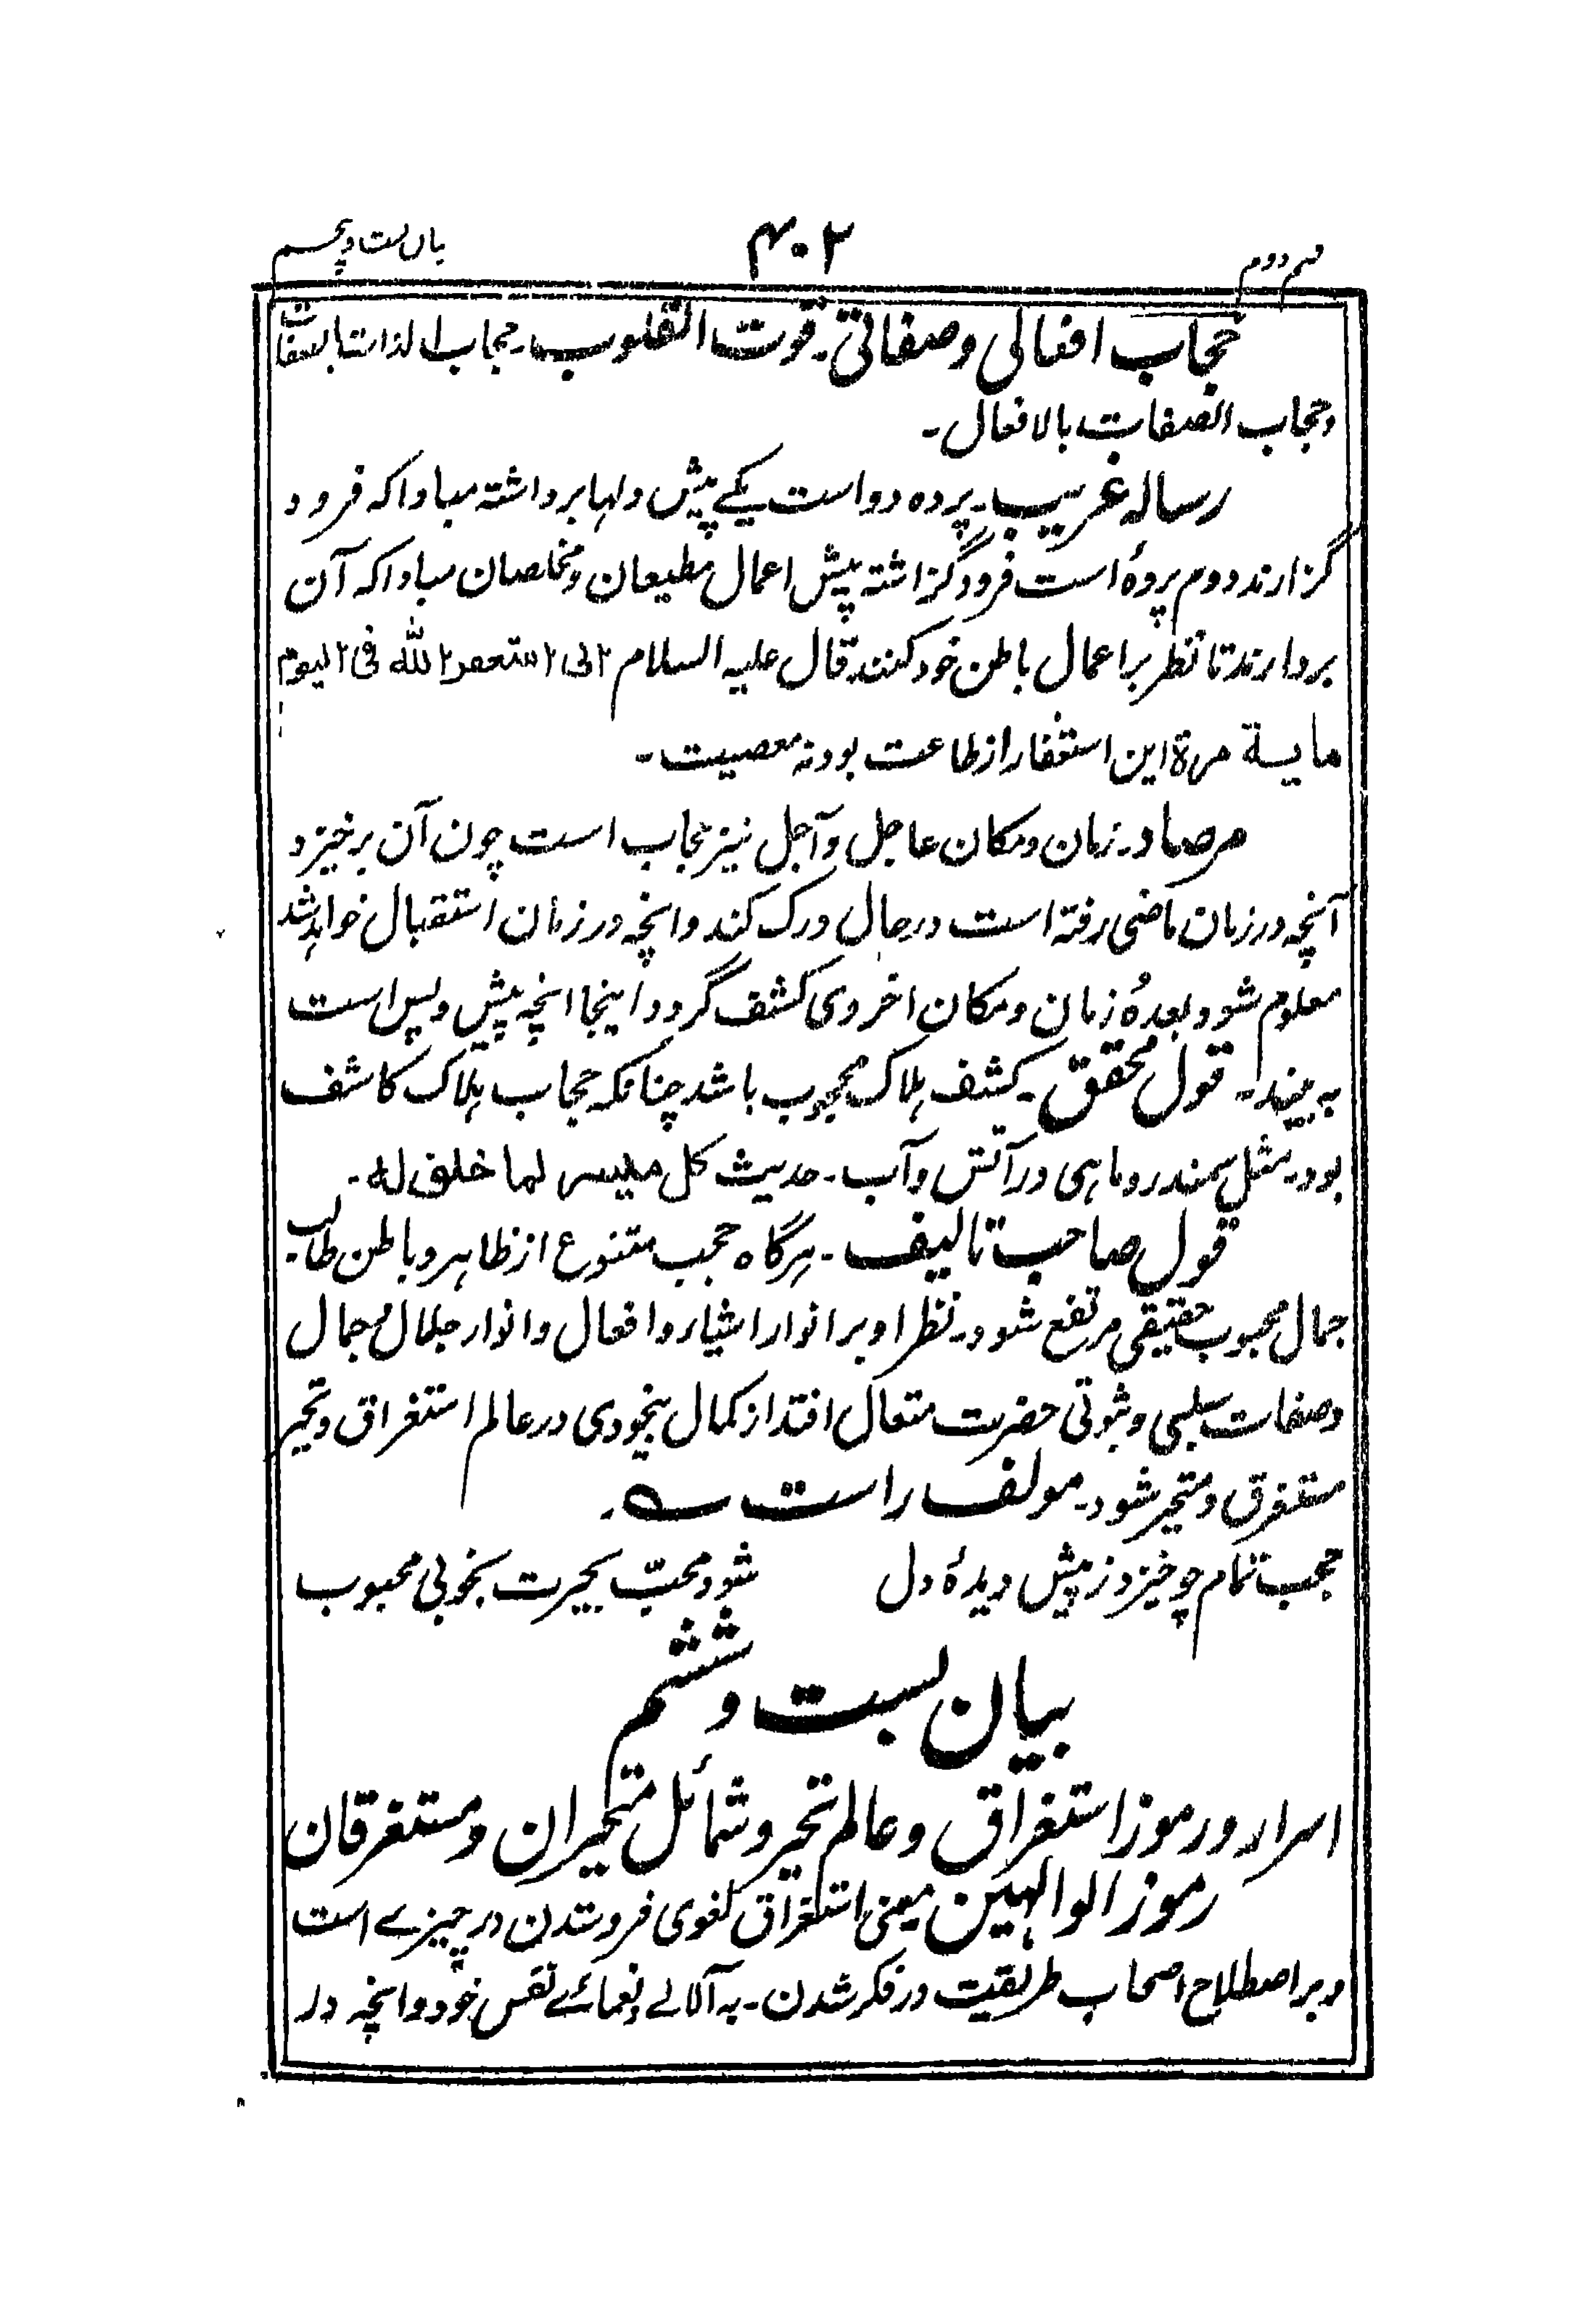 قسم دوم ۴۰۲ بیان بست و پنجم
حجاب افعالی و صفاتی۔ قوت القلوب۔ حجاب الذات بالصفات
و حجاب الصفات بالافعال۔
رسالہ غریب۔ پردہ دو است یکے پیش دلہا برداشتہ مبادا کہ فرود
گزارند دوم پردۂ است فرود گزاشتہ پیش اعمال مطیعان و مخلصان مبادا کہ آن
بردارند تا نظر بر اعمال باطن خود کنند قال علیہ السلام انی استغفر الله فی الیوم
مایسة مرة این استغفار از طاعت بود نہ معصیت۔
مرصاد۔ زمان و مکان عاجل و آجل نیز حجاب است چون آن برخیزد
آنچہ در زمان ماضی رفتہ است در حال درک کند و انچہ در زمان استقبال خواہد شد
معلوم شود بعدہٗ زمان و مکان اخروی کشف گردد اینجا انچہ پیش و پس است
بہ بیند۔ قول محقق۔ کشف ہلاک محجوب باشد چنانکہ حجاب ہلاک کاشف
بود۔ مثل سمندر و ماہی در آتش و آب۔ حدیث کل میسر لما خلق له۔
قول صاحب تالیف۔ ہرگاہ حجب متنوع از ظاہر و باطن طالب
جمال محبوب حقیقی مرتفع شود۔ نظر او بر انوار اشیاء و افعال و انوار جلال و جمال
و صفات سلبی و ثبوتی حضرت متعال افتد از کمال بیخودی در عالم استغراق و تحیر
مستغرق و متحیر شود۔ مولف راست ؎
حجب تمام چو خیزد ز پیش دیدۂ دل شود محبّ بحیرت بخوبی محبوب
بیان بست و ششم
اسرار و رموز استغراق و عالم تحیر و شمائل متحیران و مستغرقان
رموز الوالہین معنی استغراق لغوی فروشدن در چیزے است
و بر اصطلاح اصحاب طریقت در فکر شدن۔ بہ آلائے و نعمائے نفس خود و انچہ در